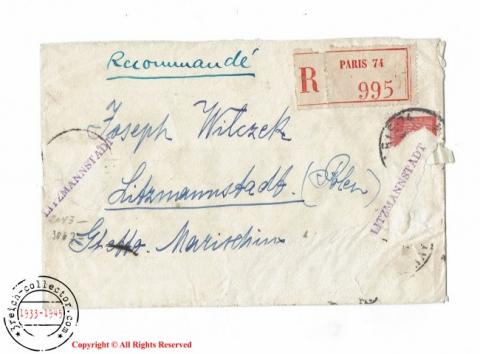 Recommandé
R PARIS 74
995
Joseph Wilczek
LITZMANNSTADT
Litzmannstadt. (Polen)
LITZMANNSTADT
Ghetto. Marischin
3reich-collector.com
1933-1945
Copyright © All Rights Reserved